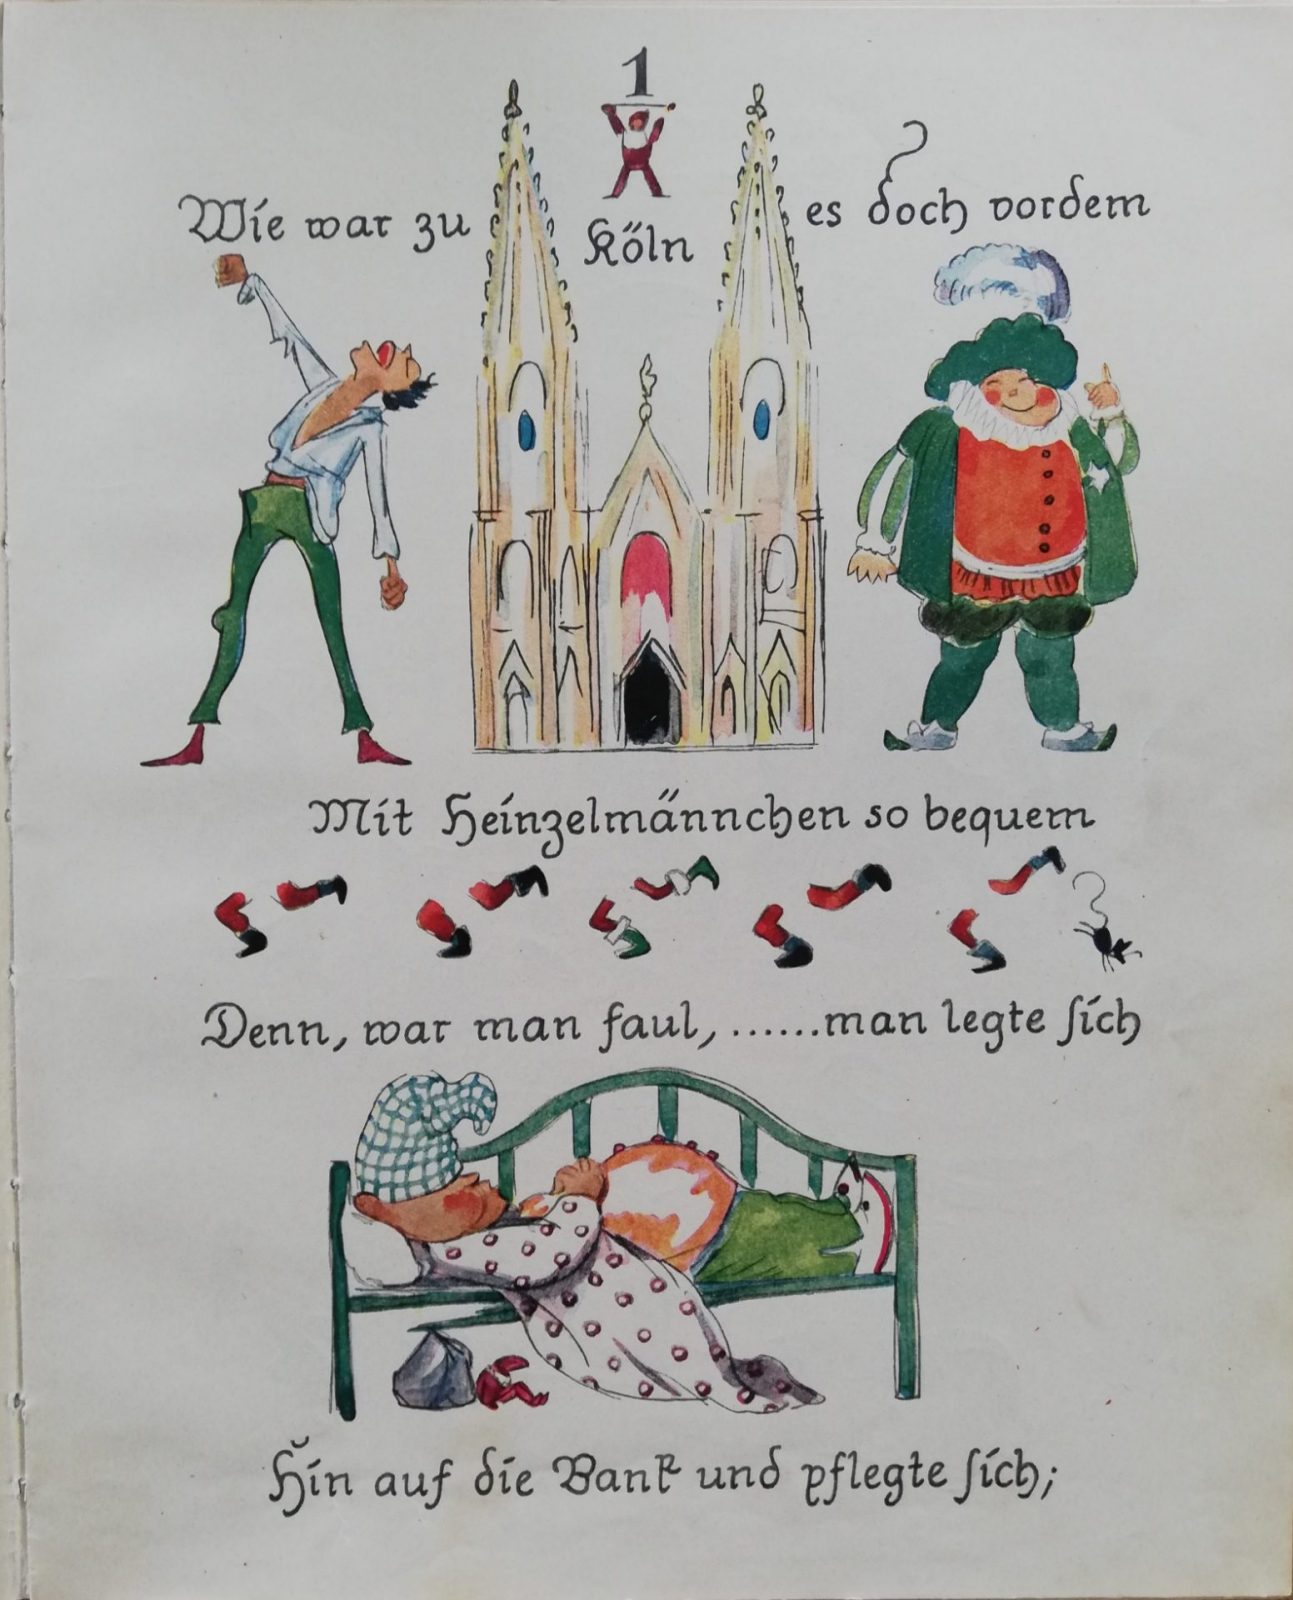 1
Wie war zu Köln es doch vordem
Mit Heinzelmännchen so bequem
Denn, war man faul, ......man legte ſich
Hin auf die Bank und pflegte ſich;